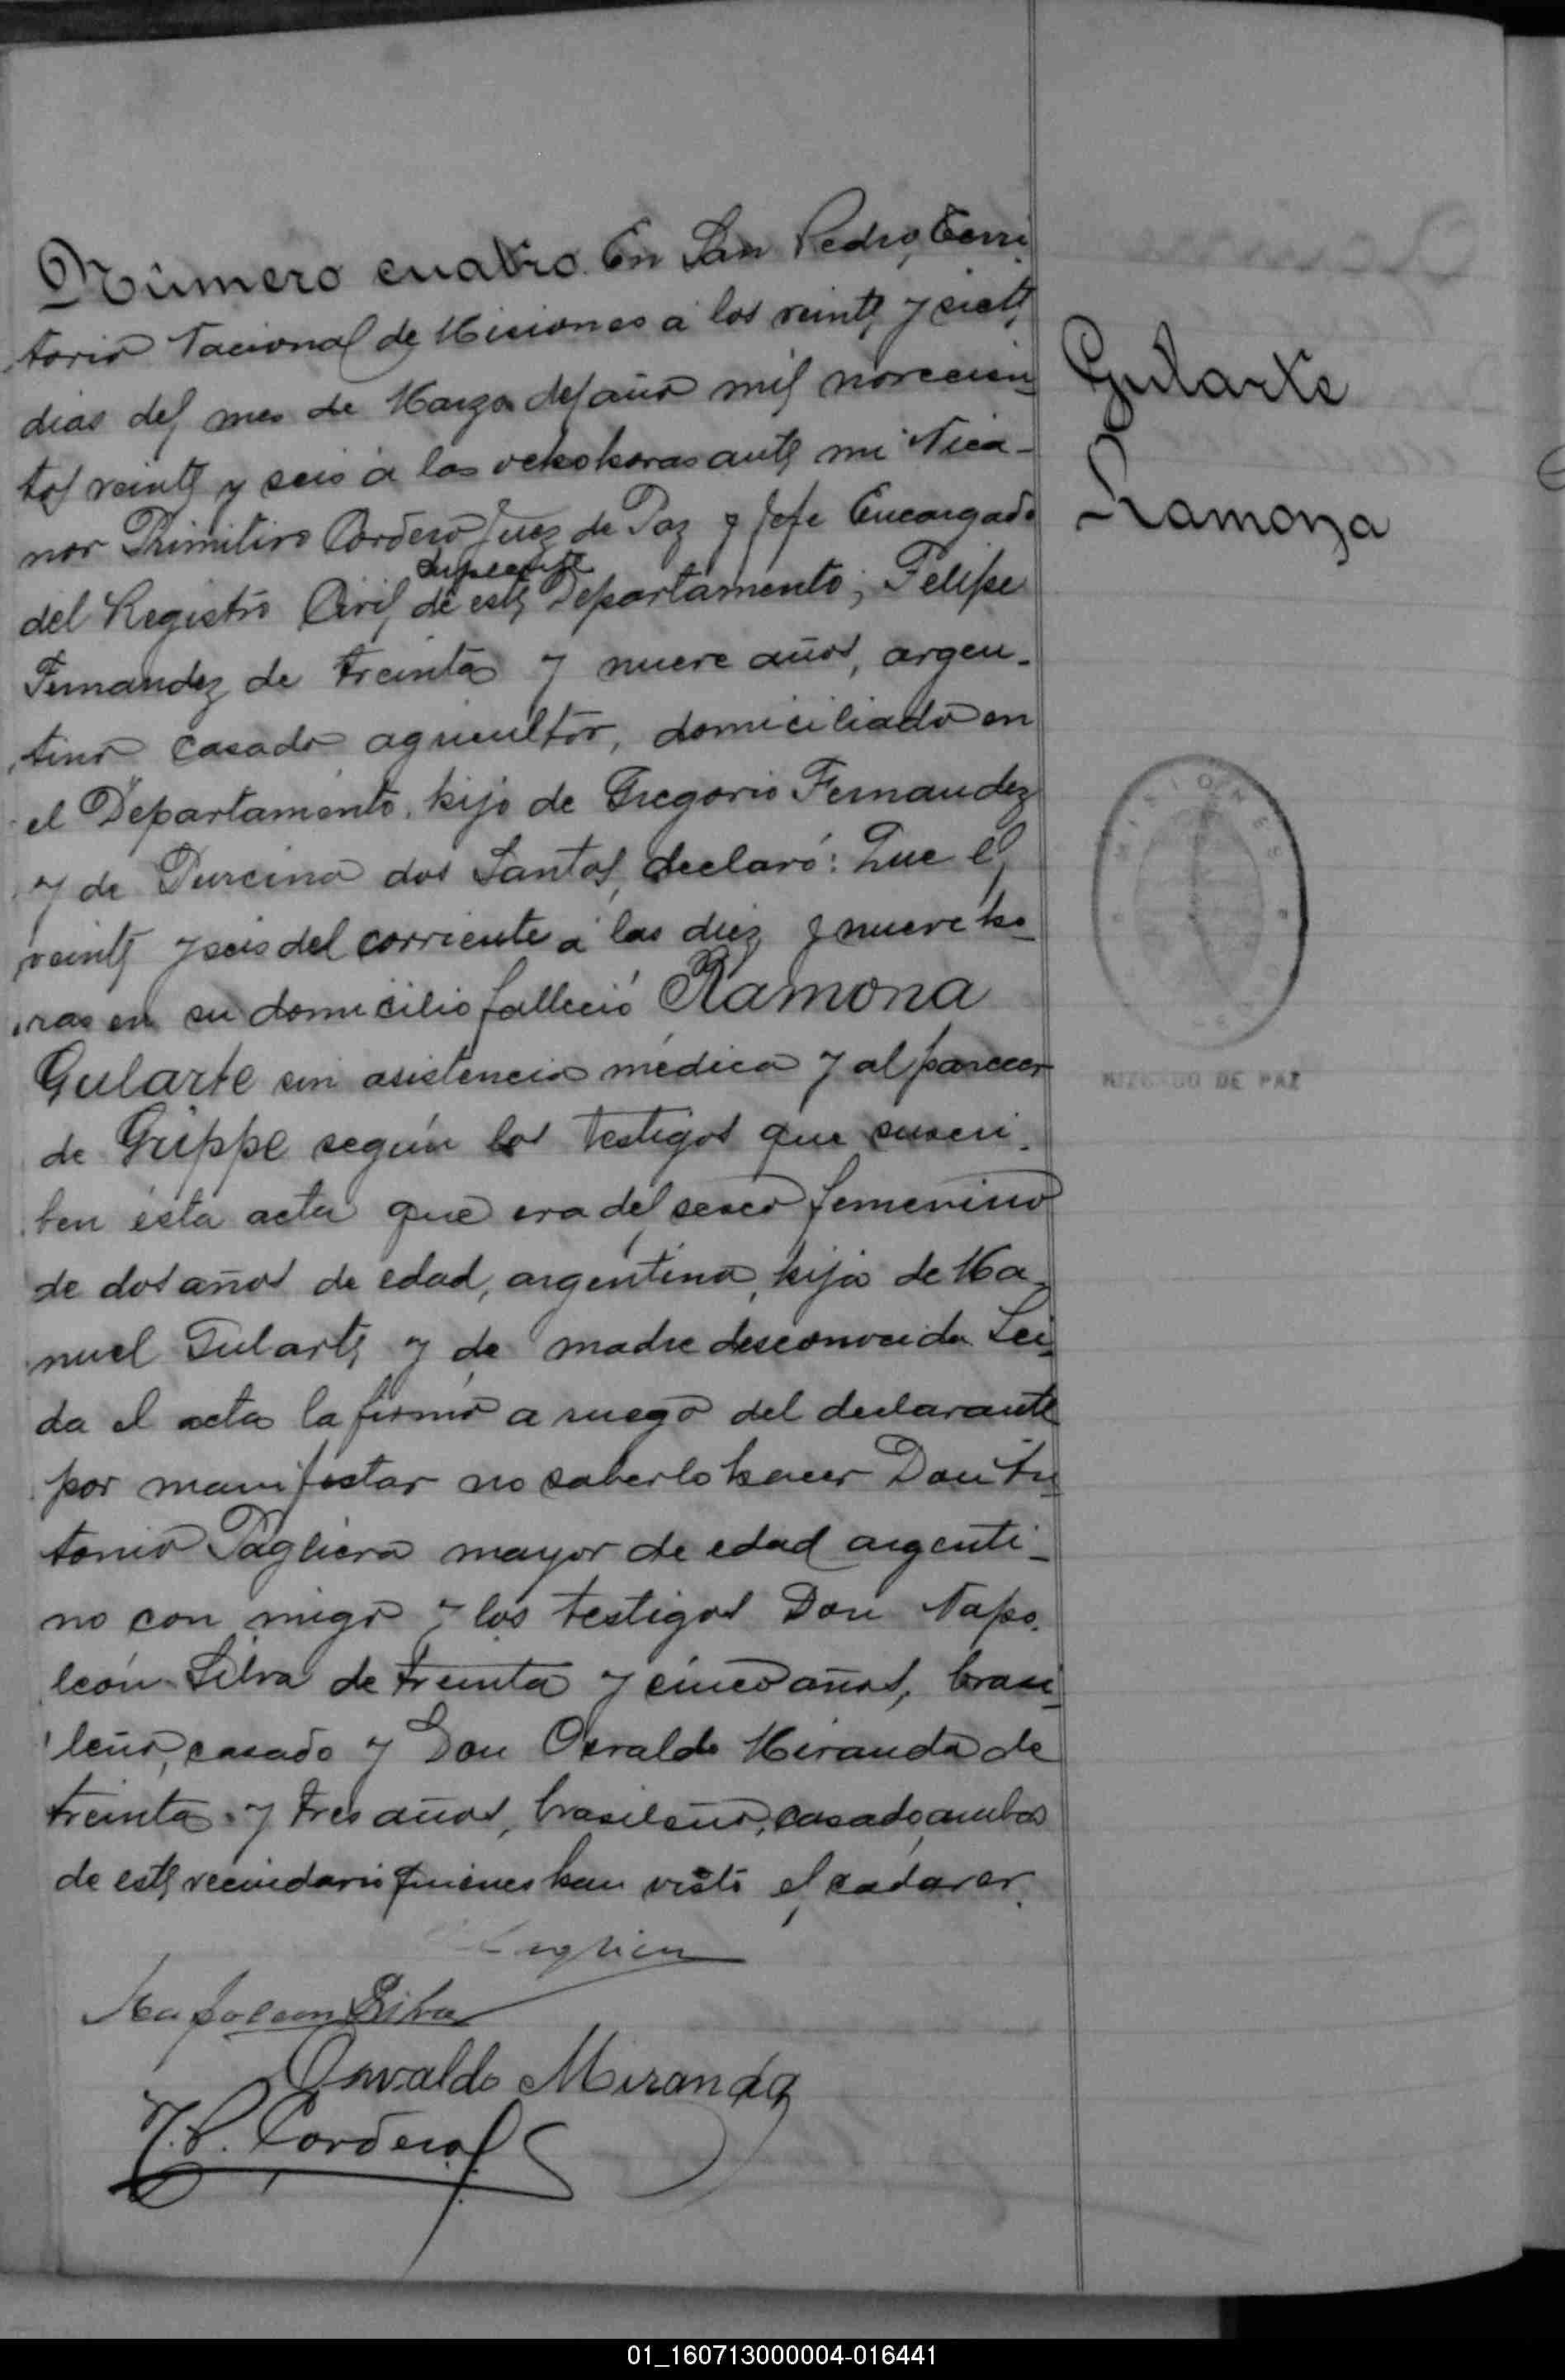 Número cuatro. En San Pedro, Terri
torio Nacional de Misiones a los veinte y siete
dias del mes de Marzo del año mil novecien-
tos veinte y seis á las ocho horas ante mi Nica-
nor Primitivo Cordero Juez de Paz y Jefe Encargado
suplente
del Registro Civil de este Departamento; Felipe
Fernandez de treinta y nueve años, argen-
tino casado agricultor, domiciliado en
el Departamento, hijo de Gregorio Fernandez
y de Purcina dos Santos, declaró: Que el
veinte y seis del corriente á las diez y nueve ho-
ras en su domicilio falleció Ramona
Gularte sin asistencia médica y al parecer
de Grippe según los testigos que suscri-
ben ésta acta que era del sexo femenino
de dos años de edad, argentina, hija de Ma-
nuel Gularte y de madre desconocida. Lei-
da el acta la firmó a ruego del declarante
por manifestar no saberlo hacer Don An-
tonio Pagliera mayor de edad argenti-
no con migo y los testigos Don Napo-
león Silva de treinta y cinco años, brasi-
leño, casado y Don Osvaldo Miranda de
treinta y tres años, brasileño, casado, ambos
de este vecindario quienes han visto el cadaver.
Napoleon Silva
Osvaldo Miranda
N. P. Cordero
Gularte
Ramona
MISIONES
JUZGADO DE PAZ
01_160713000004-016441